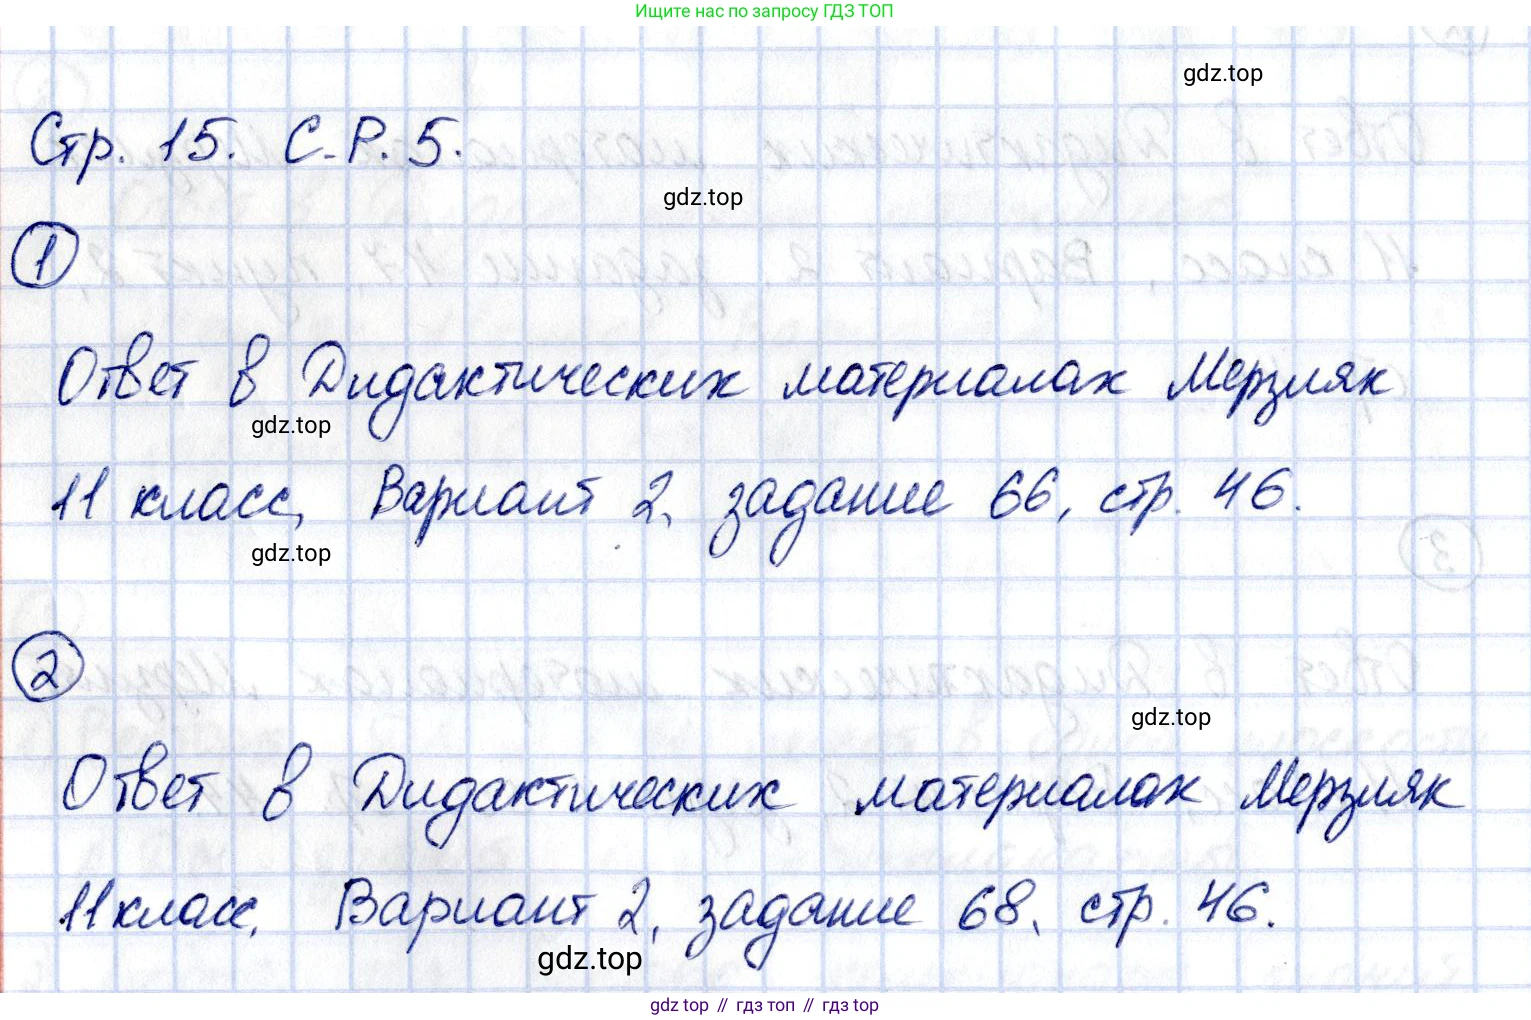 Ищите нас по запросу ГДЗ ТОП
gdz.top
Стр. 15. С.Р. 5.
gdz.top
1
Ответ в Дидактических материалах Мерзляк
gdz.top
11 класс, Вариант 2, задание 66, стр. 46.
gdz.top
2
gdz.top
Ответ в Дидактических материалах Мерзляк
11 класс, Вариант 2, задание 68, стр. 46.
gdz.top
gdz top // гдз топ // гдз top